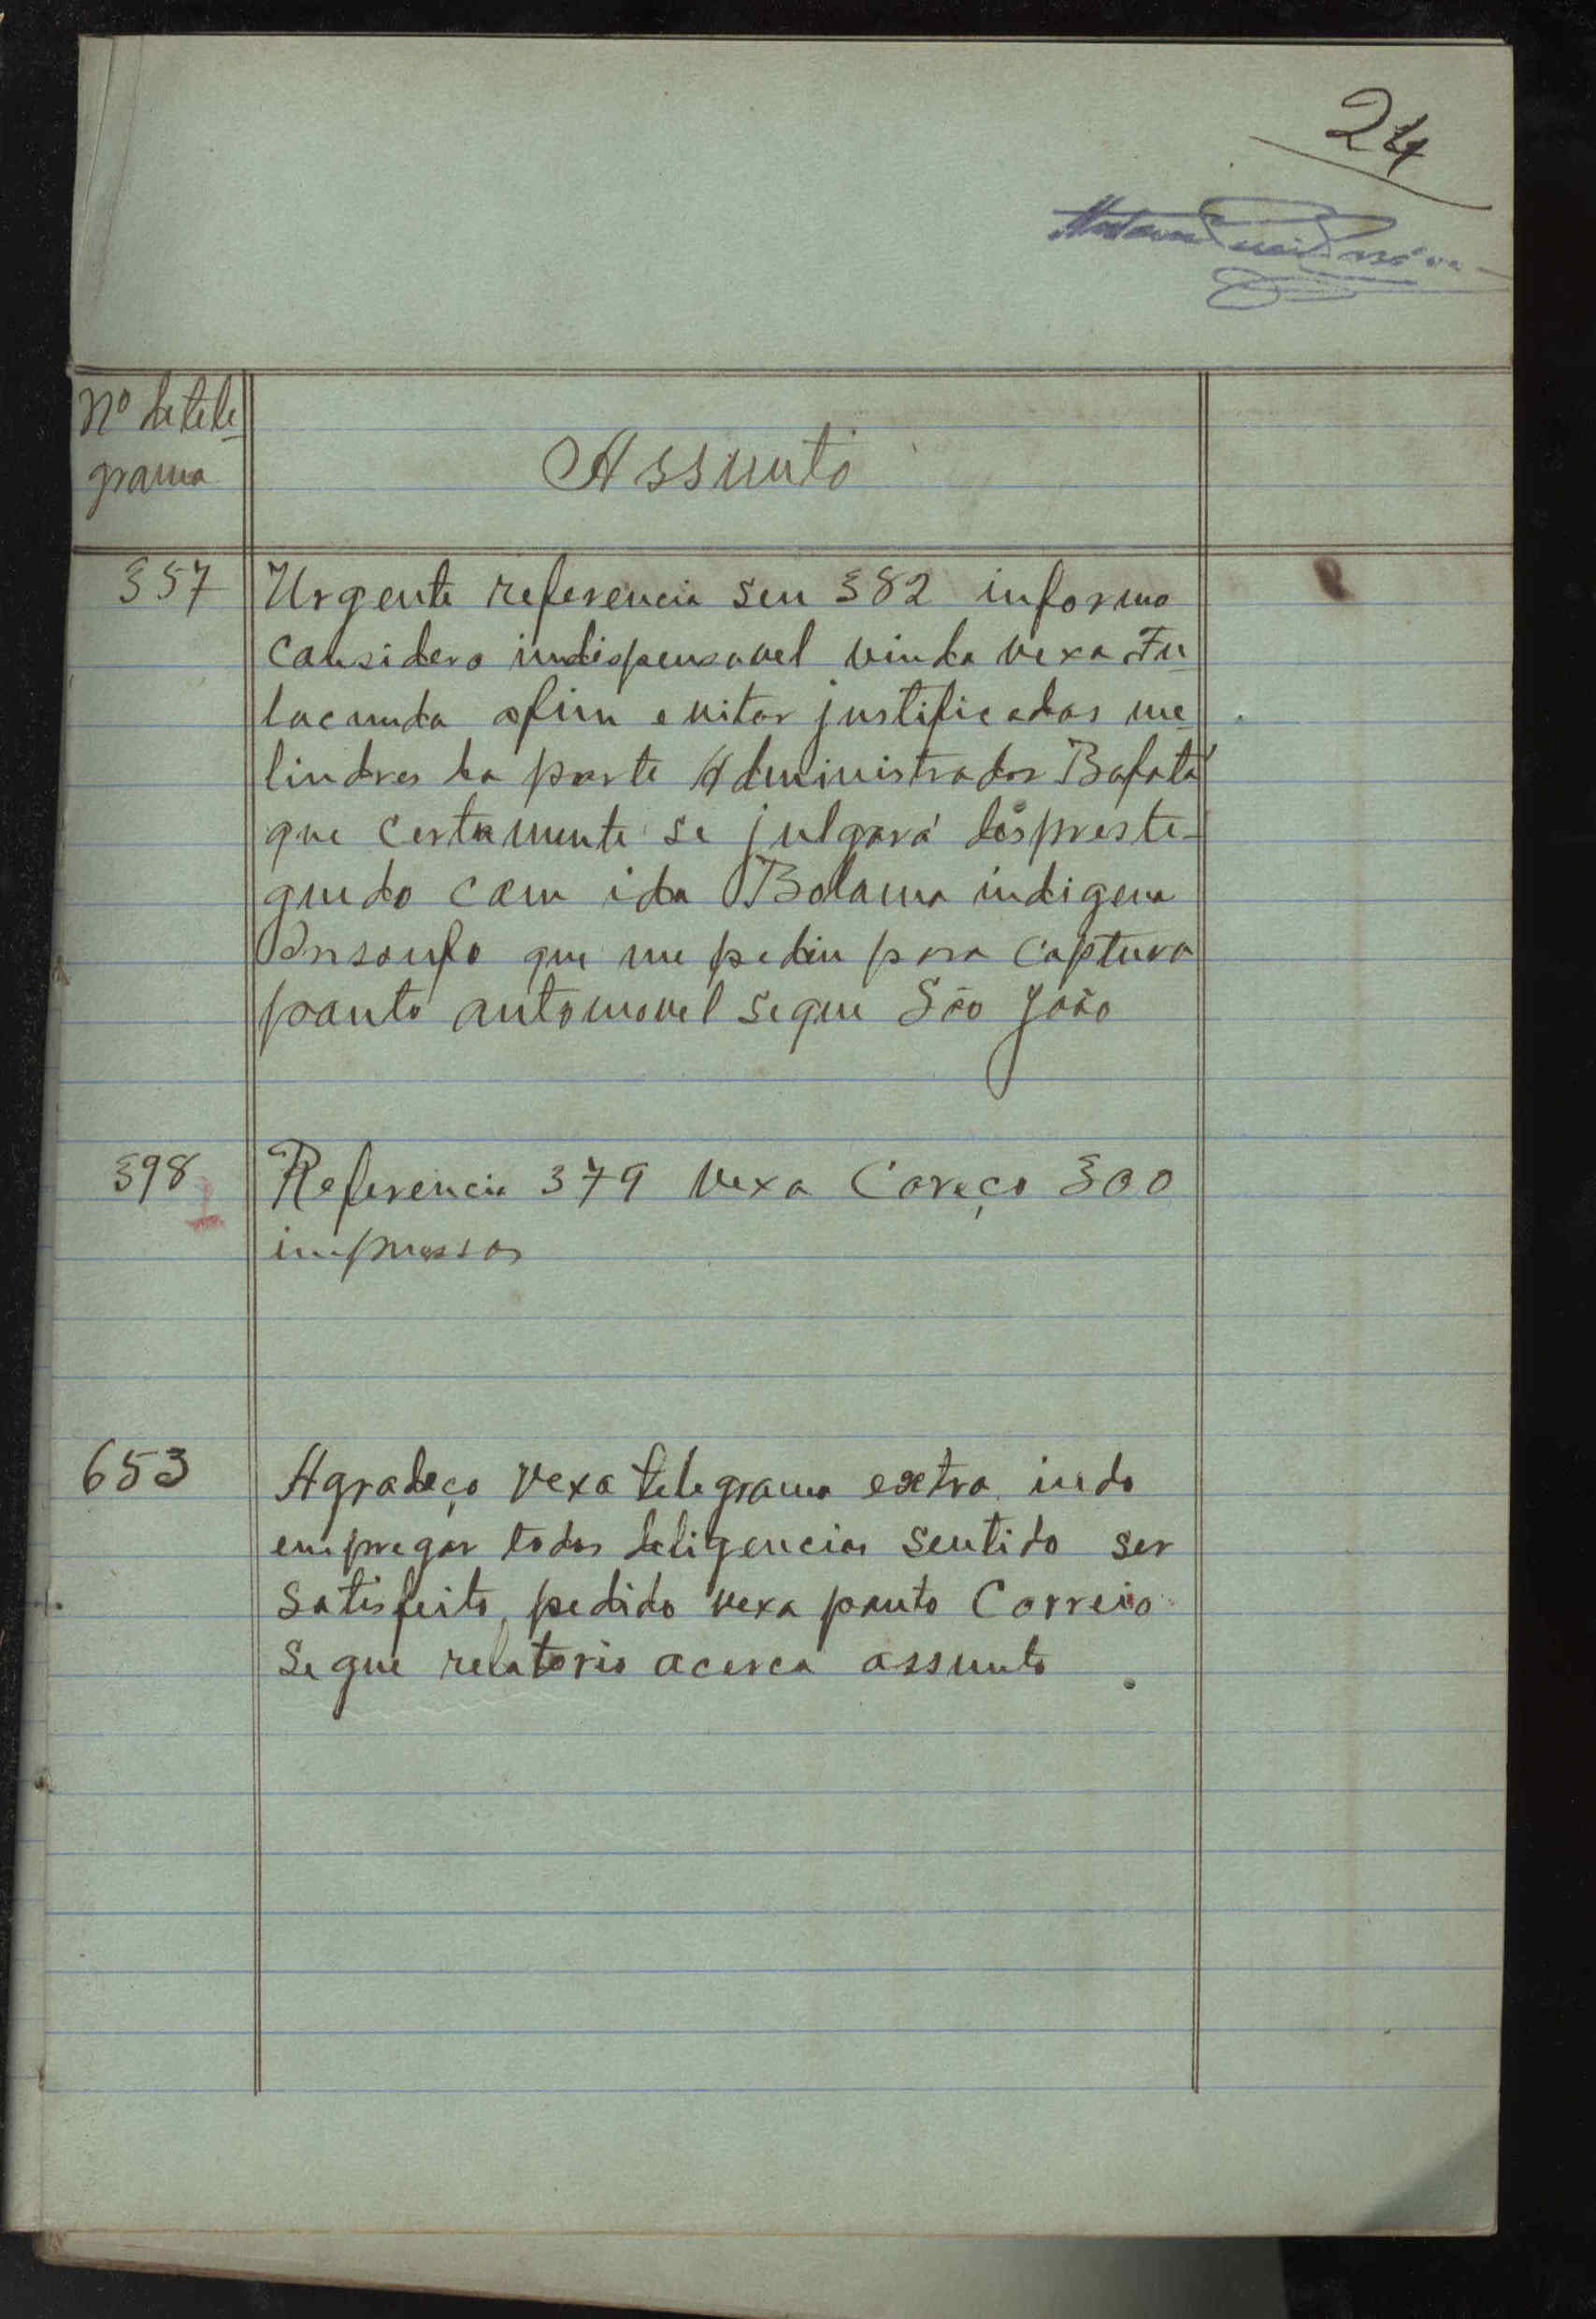 24
Nº de tele-
grama
Assunto
357 Urgente referencia seu 382 informo
considero indispensavel vinda vexa Fu-
lacunda afim evitar justificadas me-
lindres da parte Administrador Bafatá
que certamente se julgará despreste-
guedo com ida Bolama indigena
que me pediu para captura
ponto automovel segue São João
398 Referencia 379 vexa Careço 300
impressos
653 Agradeço vexa telegrama extra indo
empregar todas deligencias sentido ser
satisfeito, pedido vexa ponto Correio
segue relatorio acerca assunto